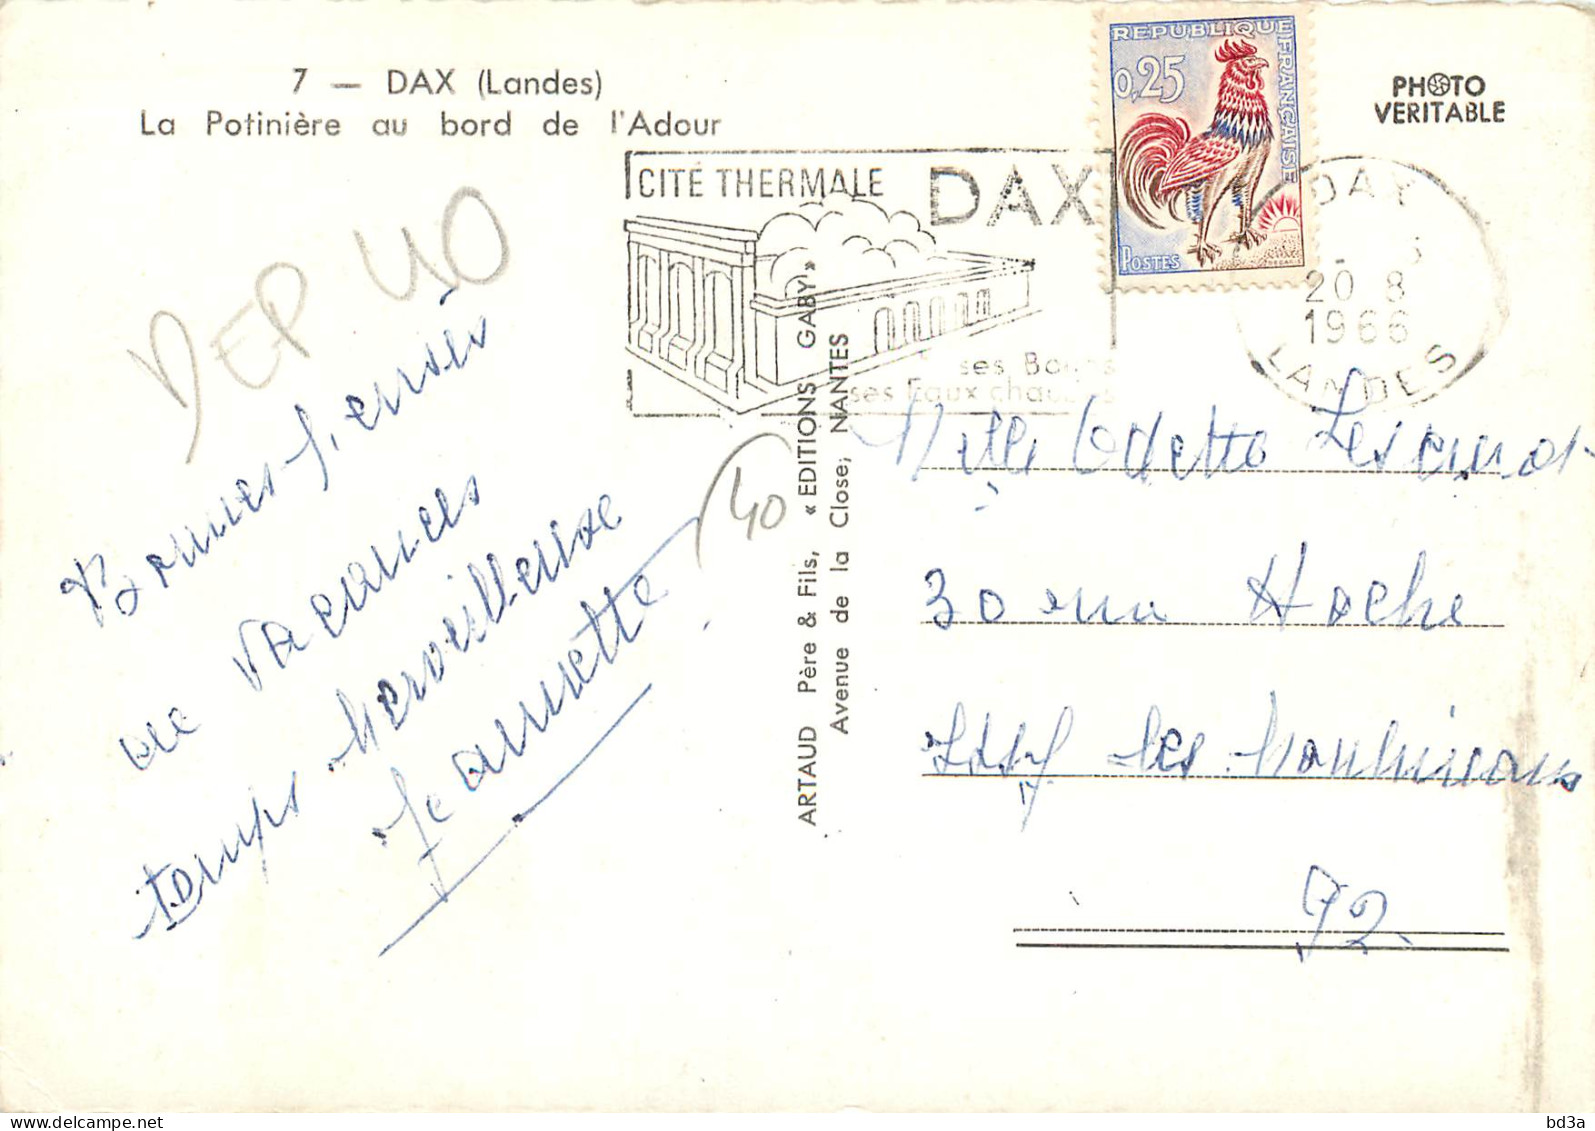 7 — DAX (Landes)
La Potinière au bord de l'Adour
PHOTO
VERITABLE
REPUBLIQUE FRANÇAISE
0,25
POSTES
CITÉ THERMALE DAX
ses Boues
ses Eaux chaudes
DAX
20 8
1966
LANDES
DEP 40
40
Bonnes
de vacances
temps merveilleux
Jeannette
ARTAUD Père & Fils, « EDITIONS GABY »
Avenue de la Close, NANTES
Melle Odette
30 rue Hoche
Issy les Moulineaux
92.
bd3a